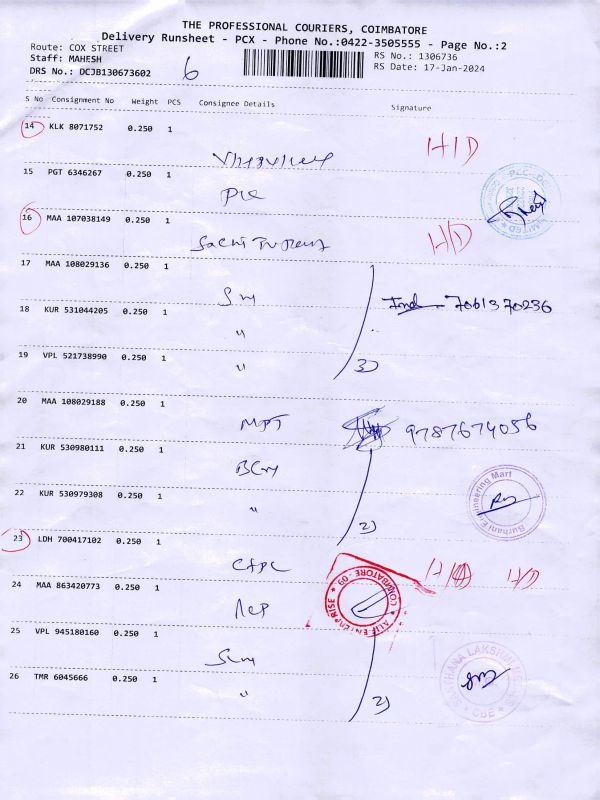 THE PROFESSIONAL COURIERS, COIMBATORE
Delivery Runsheet - PCX - Phone No.:0422-3505555 - Page No.:2
Route: COX STREET
Staff: MAHESH
DRS No.: DCJB130673602
6
RS No.: 1306736
RS Date: 17-Jan-2024
S No Consignment No Weight PCS Consignee Details Signature
14 KLK 8071752 0.250 1 H/D
15 PGT 6346267 0.250 1
16 MAA 107038149 0.250 1 H/D
17 MAA 108029136 0.250 1
7061370236
18 KUR 531044205 0.250 1
"
19 VPL 521738990 0.250 1
" 3)
20 MAA 108029188 0.250 1
MPT 9787674056
21 KUR 530980111 0.250 1
22 KUR 530979308 0.250 1
" 2)
Burhani Engineering Mart
23 LDH 700417102 0.250 1
H/D H/D
24 MAA 863420773 0.250 1
ALIF ENTERPRISE COIMBATORE
25 VPL 945180160 0.250 1
26 TMR 6045666 0.250 1
" 2)
CBE